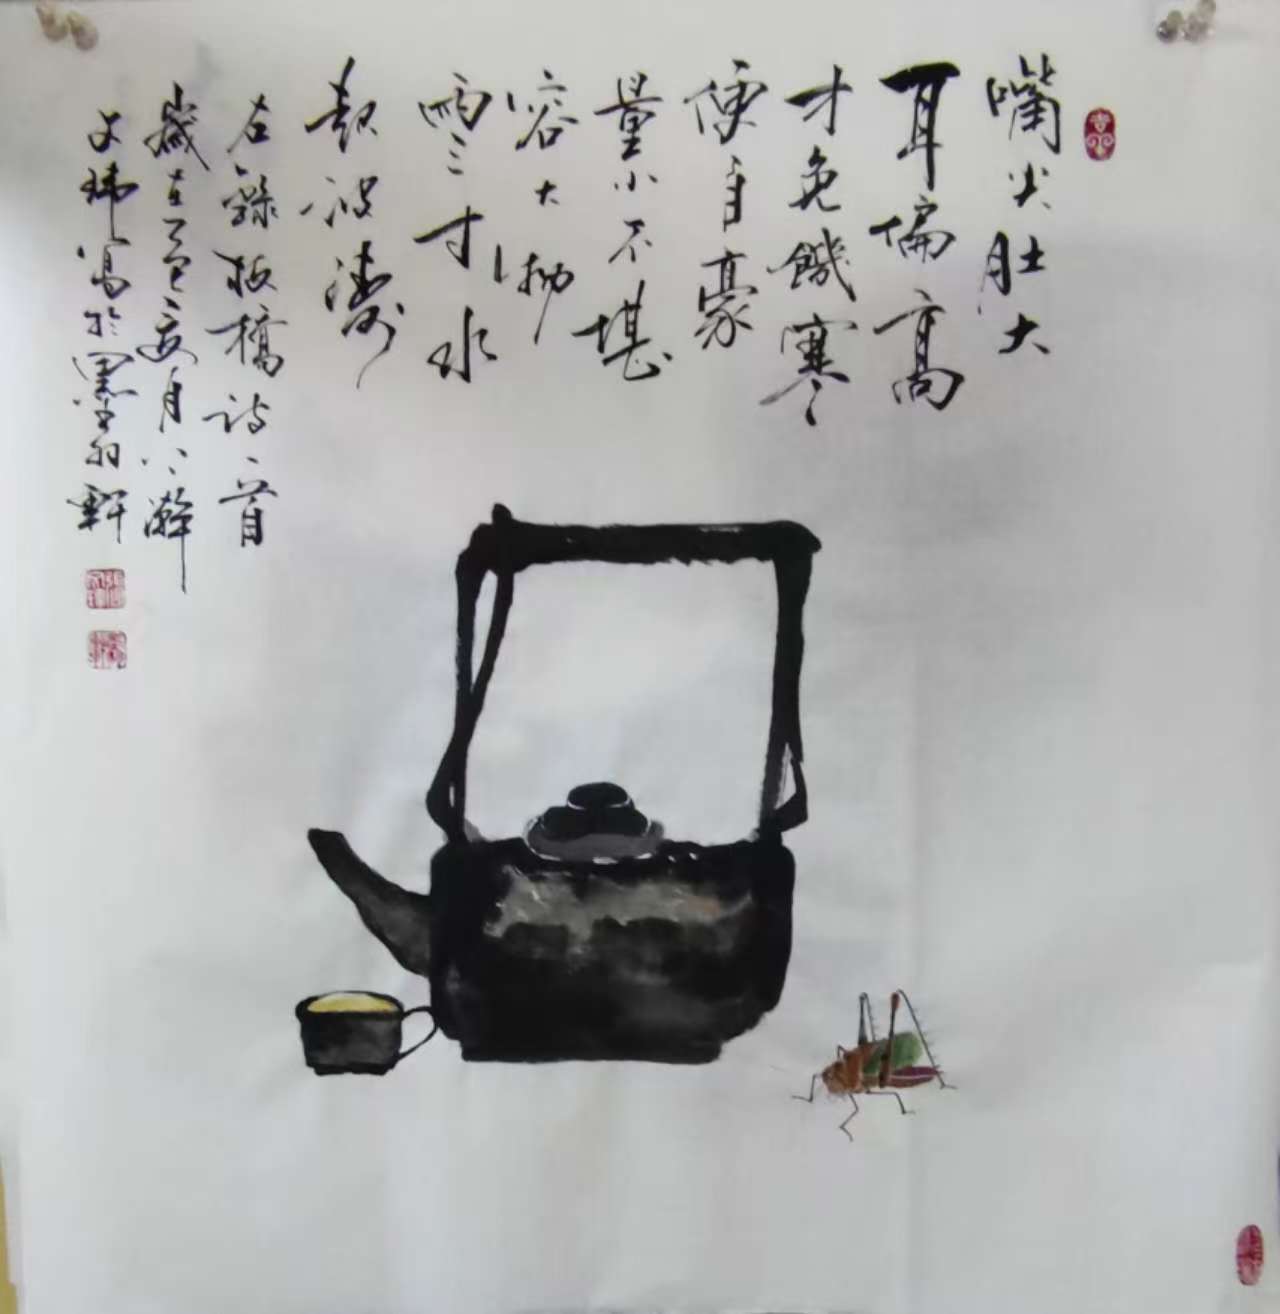 嘴尖肚大
耳偏高
才免饑寒
便自豪
量小不堪
容大物
兩三寸水
起波濤
右錄板橋詩一首
歲在
月
文瑋寫於墨翁軒